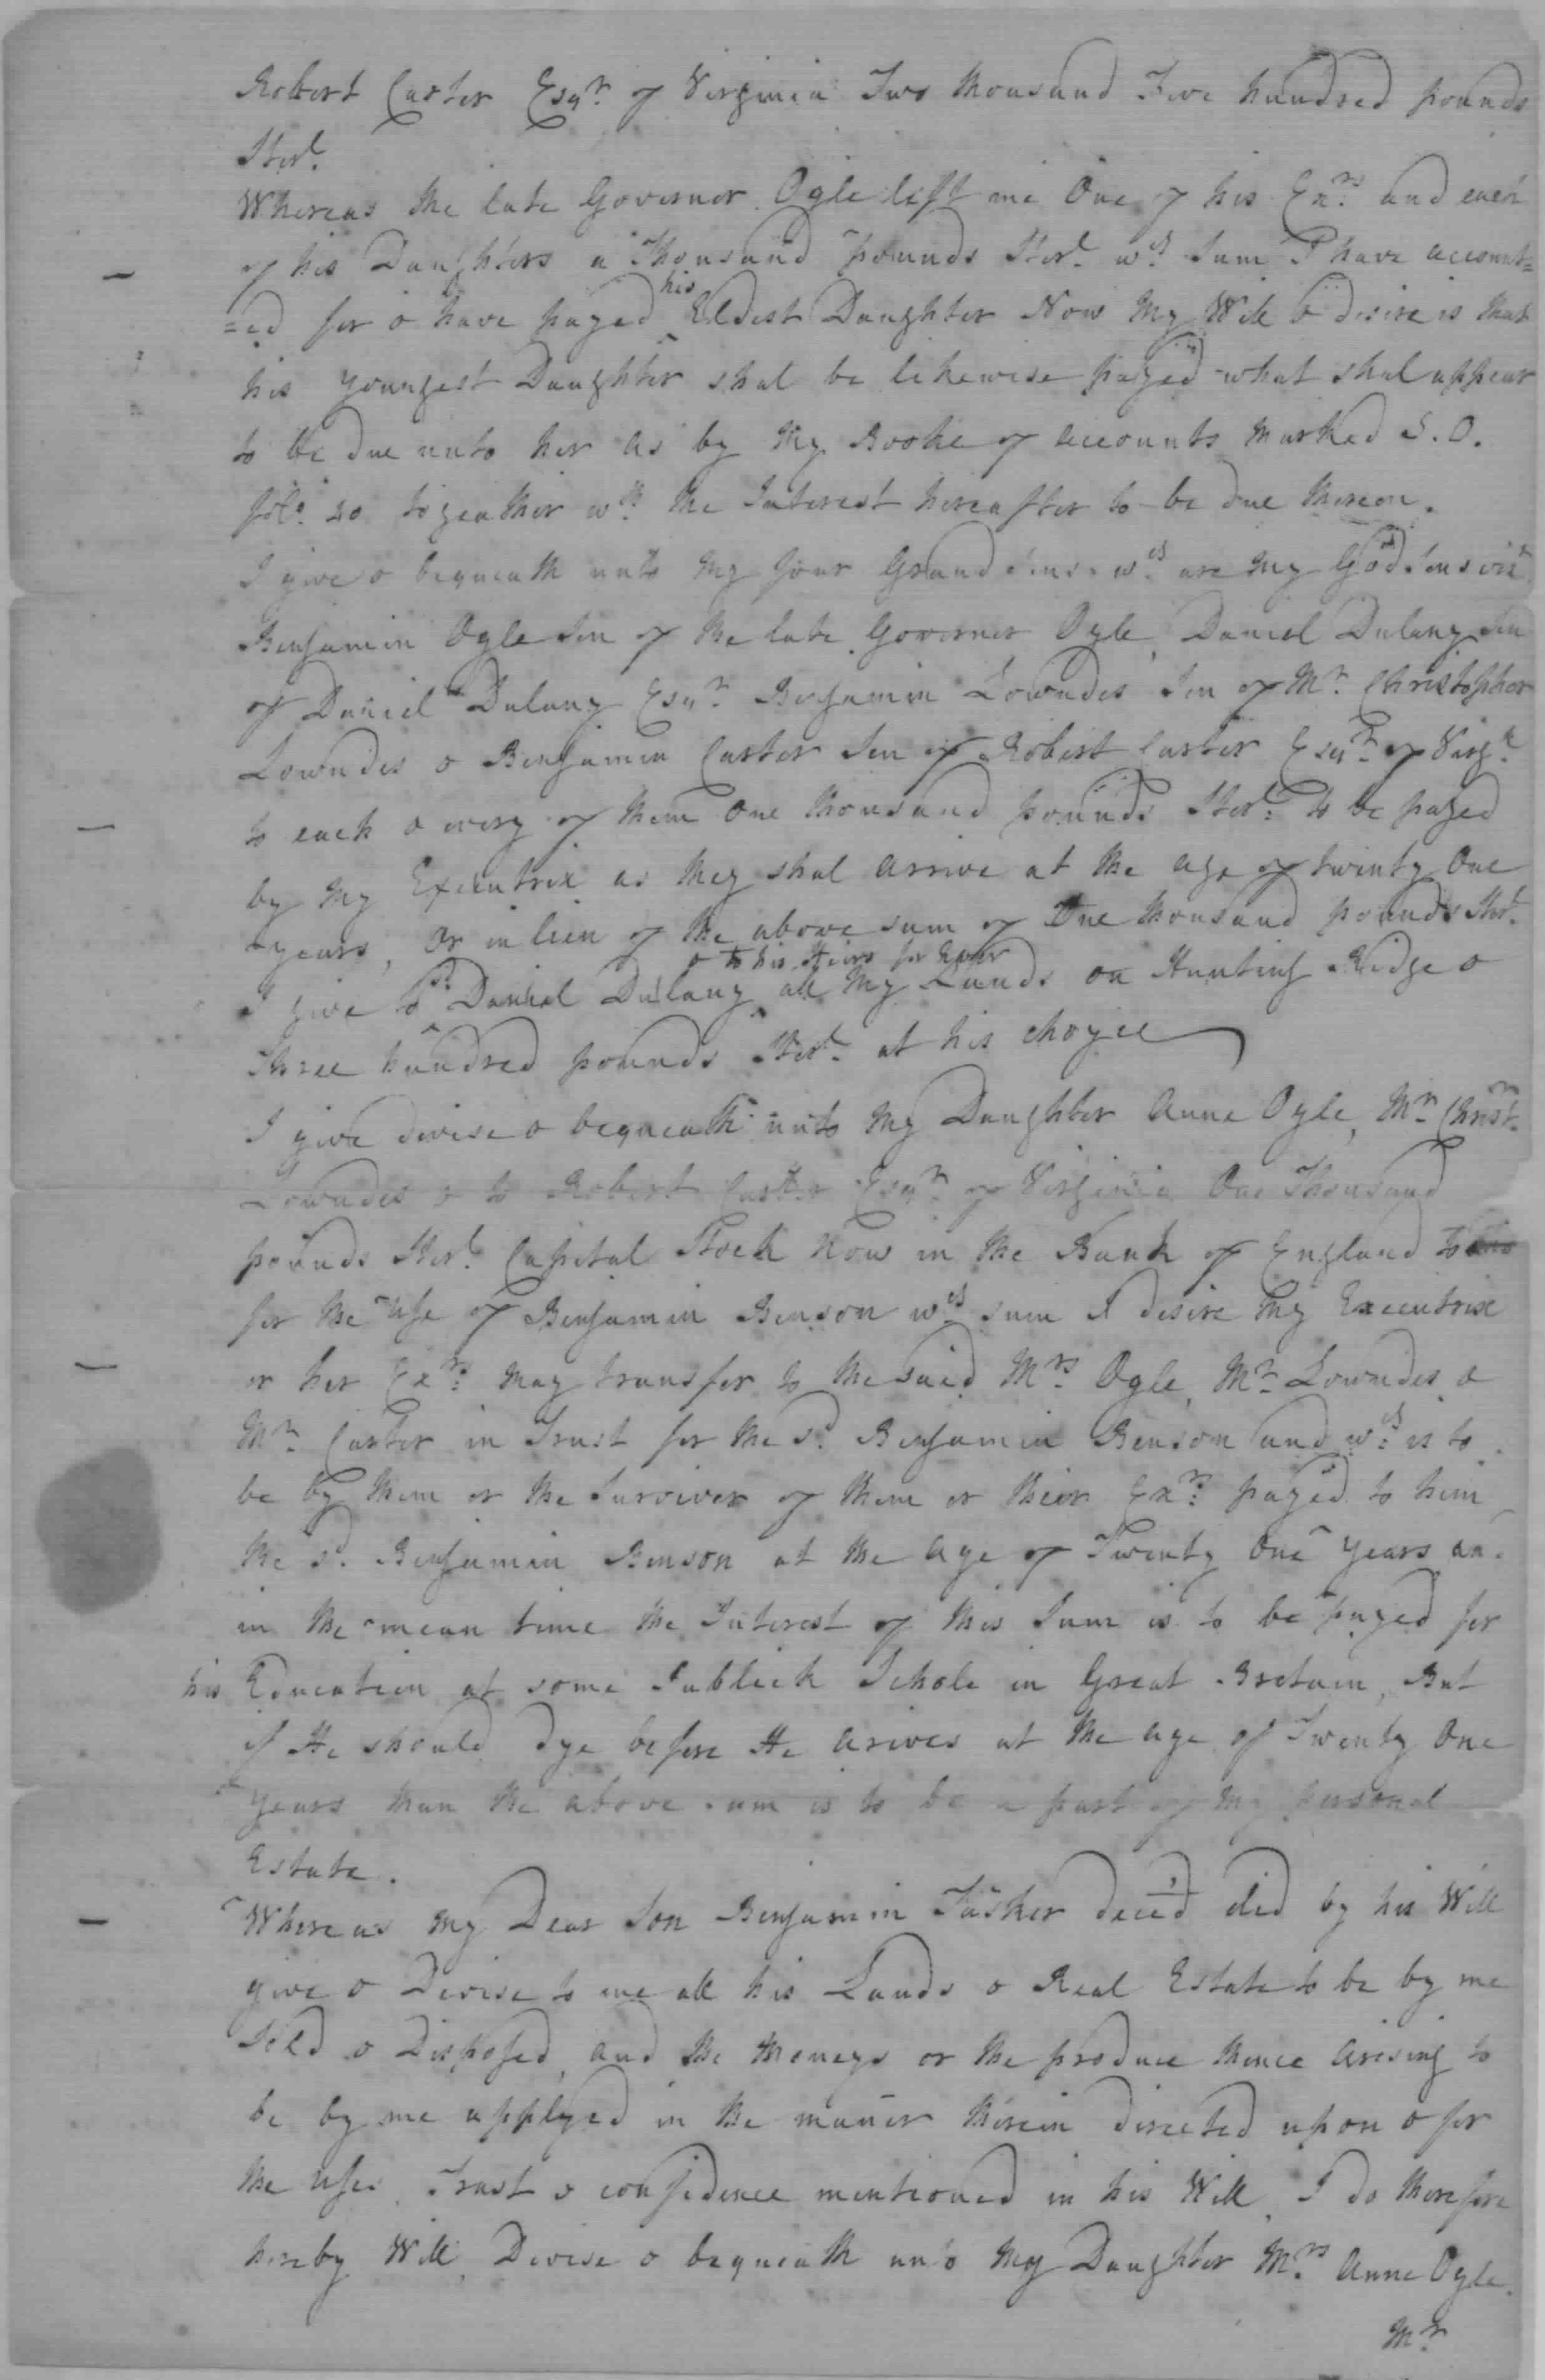 Robert Carter Esqr. of Virginia Two thousand Five hundred pounds
Sterl.
Whereas the late Governor Ogle left me One of his Exrs. and each
of his Daughters a Thousand pounds Sterl. wch. Sum I have account=
=ed for & have payed his Eldest Daughter Now My Will & desire is that
his youngest Daughter shal be likewise payed what shal appear
to be due unto her as by My Booke of accounts Marked S. O.
folo. 20 togeather wth. the Interest hereafter to be due thereon.
I give & bequeath unto My four Grand Sons wch. are My God Sons vizt.
Benjamin Ogle Son of the late Governor Ogle, Daniel Dulany Son
of Daniel Dulany Esqr. Benjamin Lowndes Son of Mr. Christopher
Lowndes & Benjamin Carter Son of Robert Carter Esqr. of Virga.
to each & every of them One thousand pounds Sterl: to be payed
by My Executrix as they shal arrive at the age of twenty One
years, Or in lieu of the above sum of One thousand pounds Sterl.
& to his Heirs for Ever
I give to sd. Daniel Dulany all My Lands on Hunting Ridge &
Three hundred pounds Sterl. at his choyce
I give devise & bequeath unto My Daughter Anne Ogle, Mr. Christr.
Lowndes & to Robert Carter Esqr. of Virginia One Thousand
pounds Sterl. Capital Stock Now in the Bank of England to
for the use of Benjamin Benson wch. sum I desire My Executrix
or her Exrs: may transfer to the said Mrs. Ogle, Mr. Lowndes &
Mr. Carter in Trust for the sd. Benjamin Benson and wch: is to
be by them or the Surviver of them or their Exrs: payed to him
the sd. Benjamin Benson at the age of Twenty One years an
in the mean time the Interest of this Sum is to be payed for
his Education at some Publick Schole in Great Bretain, But
if He should dye before He arives at the age of Twenty One
years than the above sum is to be a part of my personal
Estate.
Whereas My Dear Son Benjamin Tasker deced did by his Will
give & Devise to me all his Lands & Real Estate to be by me
Sold & Disposed, and the Moneys or the produce thence Arising to
be by me applyed in the maner therein directed upon & for
the uses Trust & confidence mentioned in his Will, I do therefore
hereby Will, Devise & bequeath unto My Daughter Mrs. Anne Ogle.
Mr.